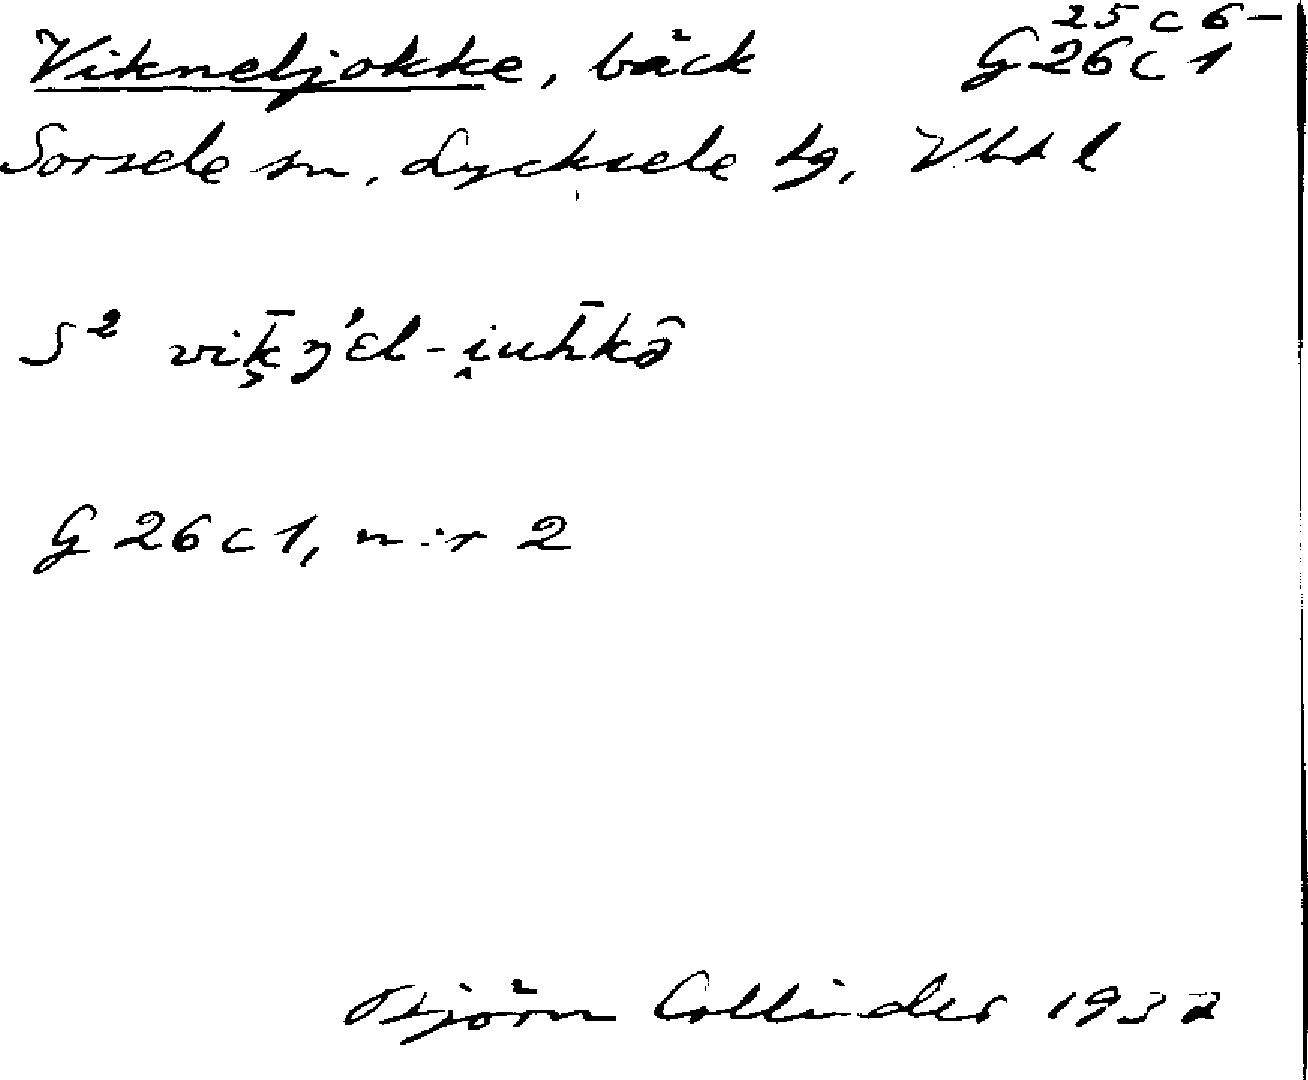 Vikneljokke, bäck
25 c 6 –
G 26 c 1
Sorsele sn, Lycksele lg, Vbt l
S² vik̭̄ŋ́ɛl-i̭uh̄kə̑
G 26 c 1, n:r 2
Björn Collinder 1932